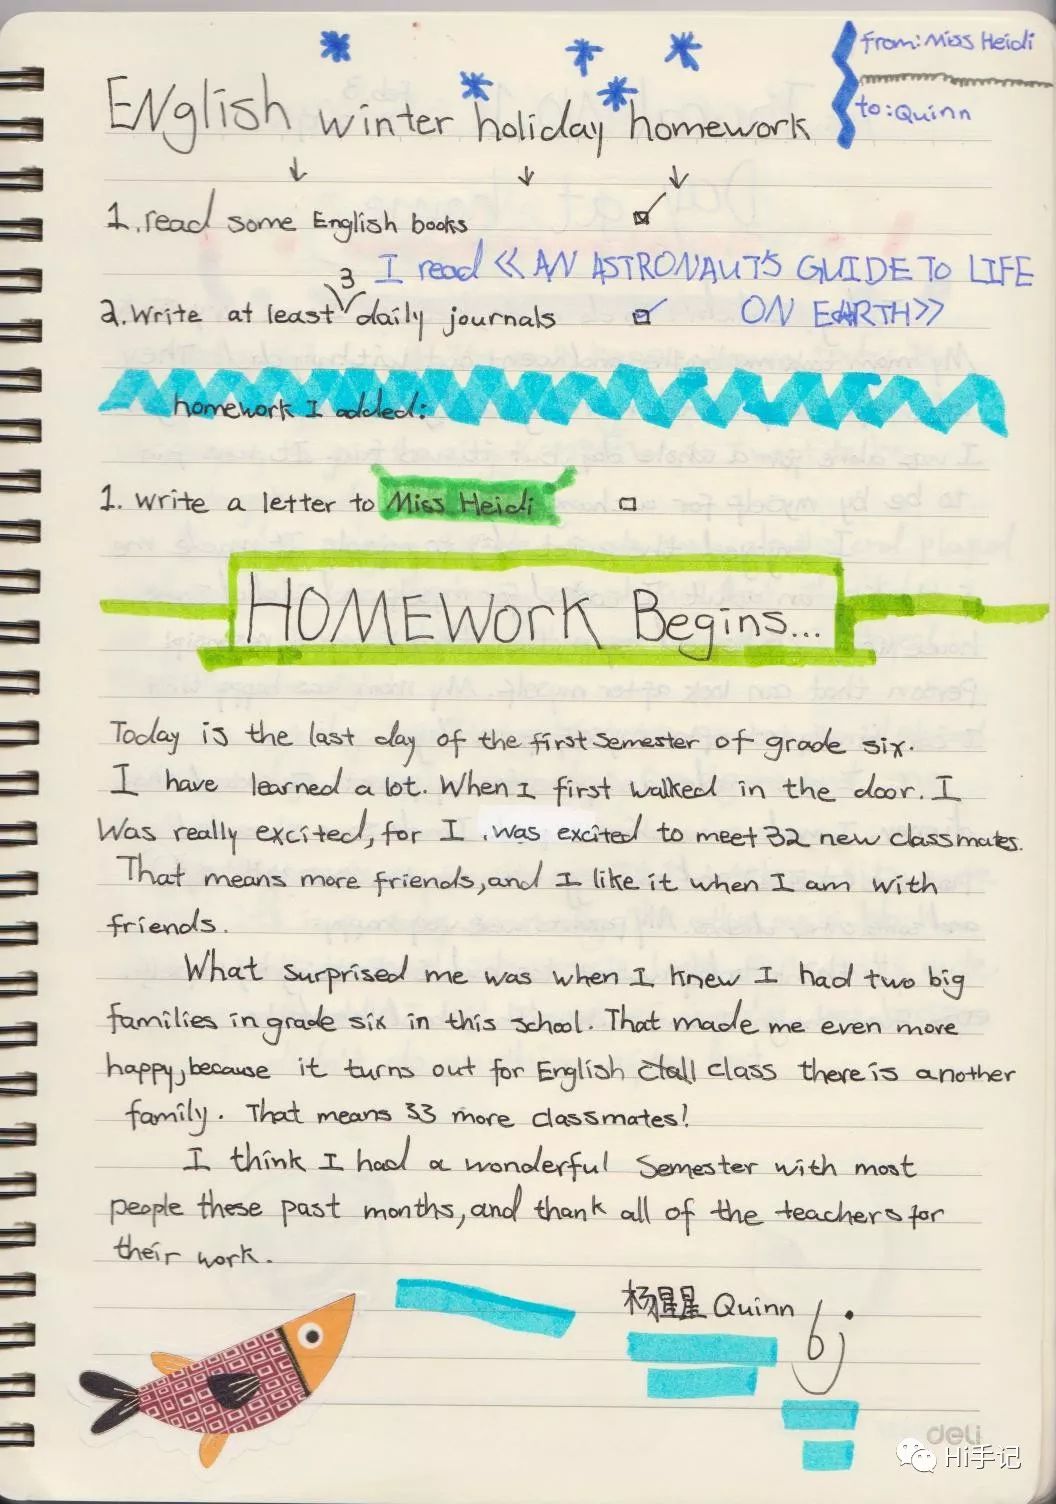 from: Miss Heidi
to: Quinn
ENglish winter holiday homework
1. read some English books
I read 《AN ASTRONAUT'S GUIDE TO LIFE
ON EARTH》
3
2. Write at least daily journals
homework I added:
1. Write a letter to Miss Heidi
HOMEWORK Begins...
Today is the last day of the first semester of grade six.
I have learned a lot. When I first walked in the door. I
Was really excited, for I was excited to meet 32 new classmates.
That means more friends, and I like it when I am with
friends.
What surprised me was when I knew I had two big
families in grade six in this school. That made me even more
happy, because it turns out for English class there is another
family. That means 33 more classmates!
I think I had a wonderful semester with most
people these past months, and thank all of the teachers for
their work.
杨星星 Quinn
deli
Hi手记